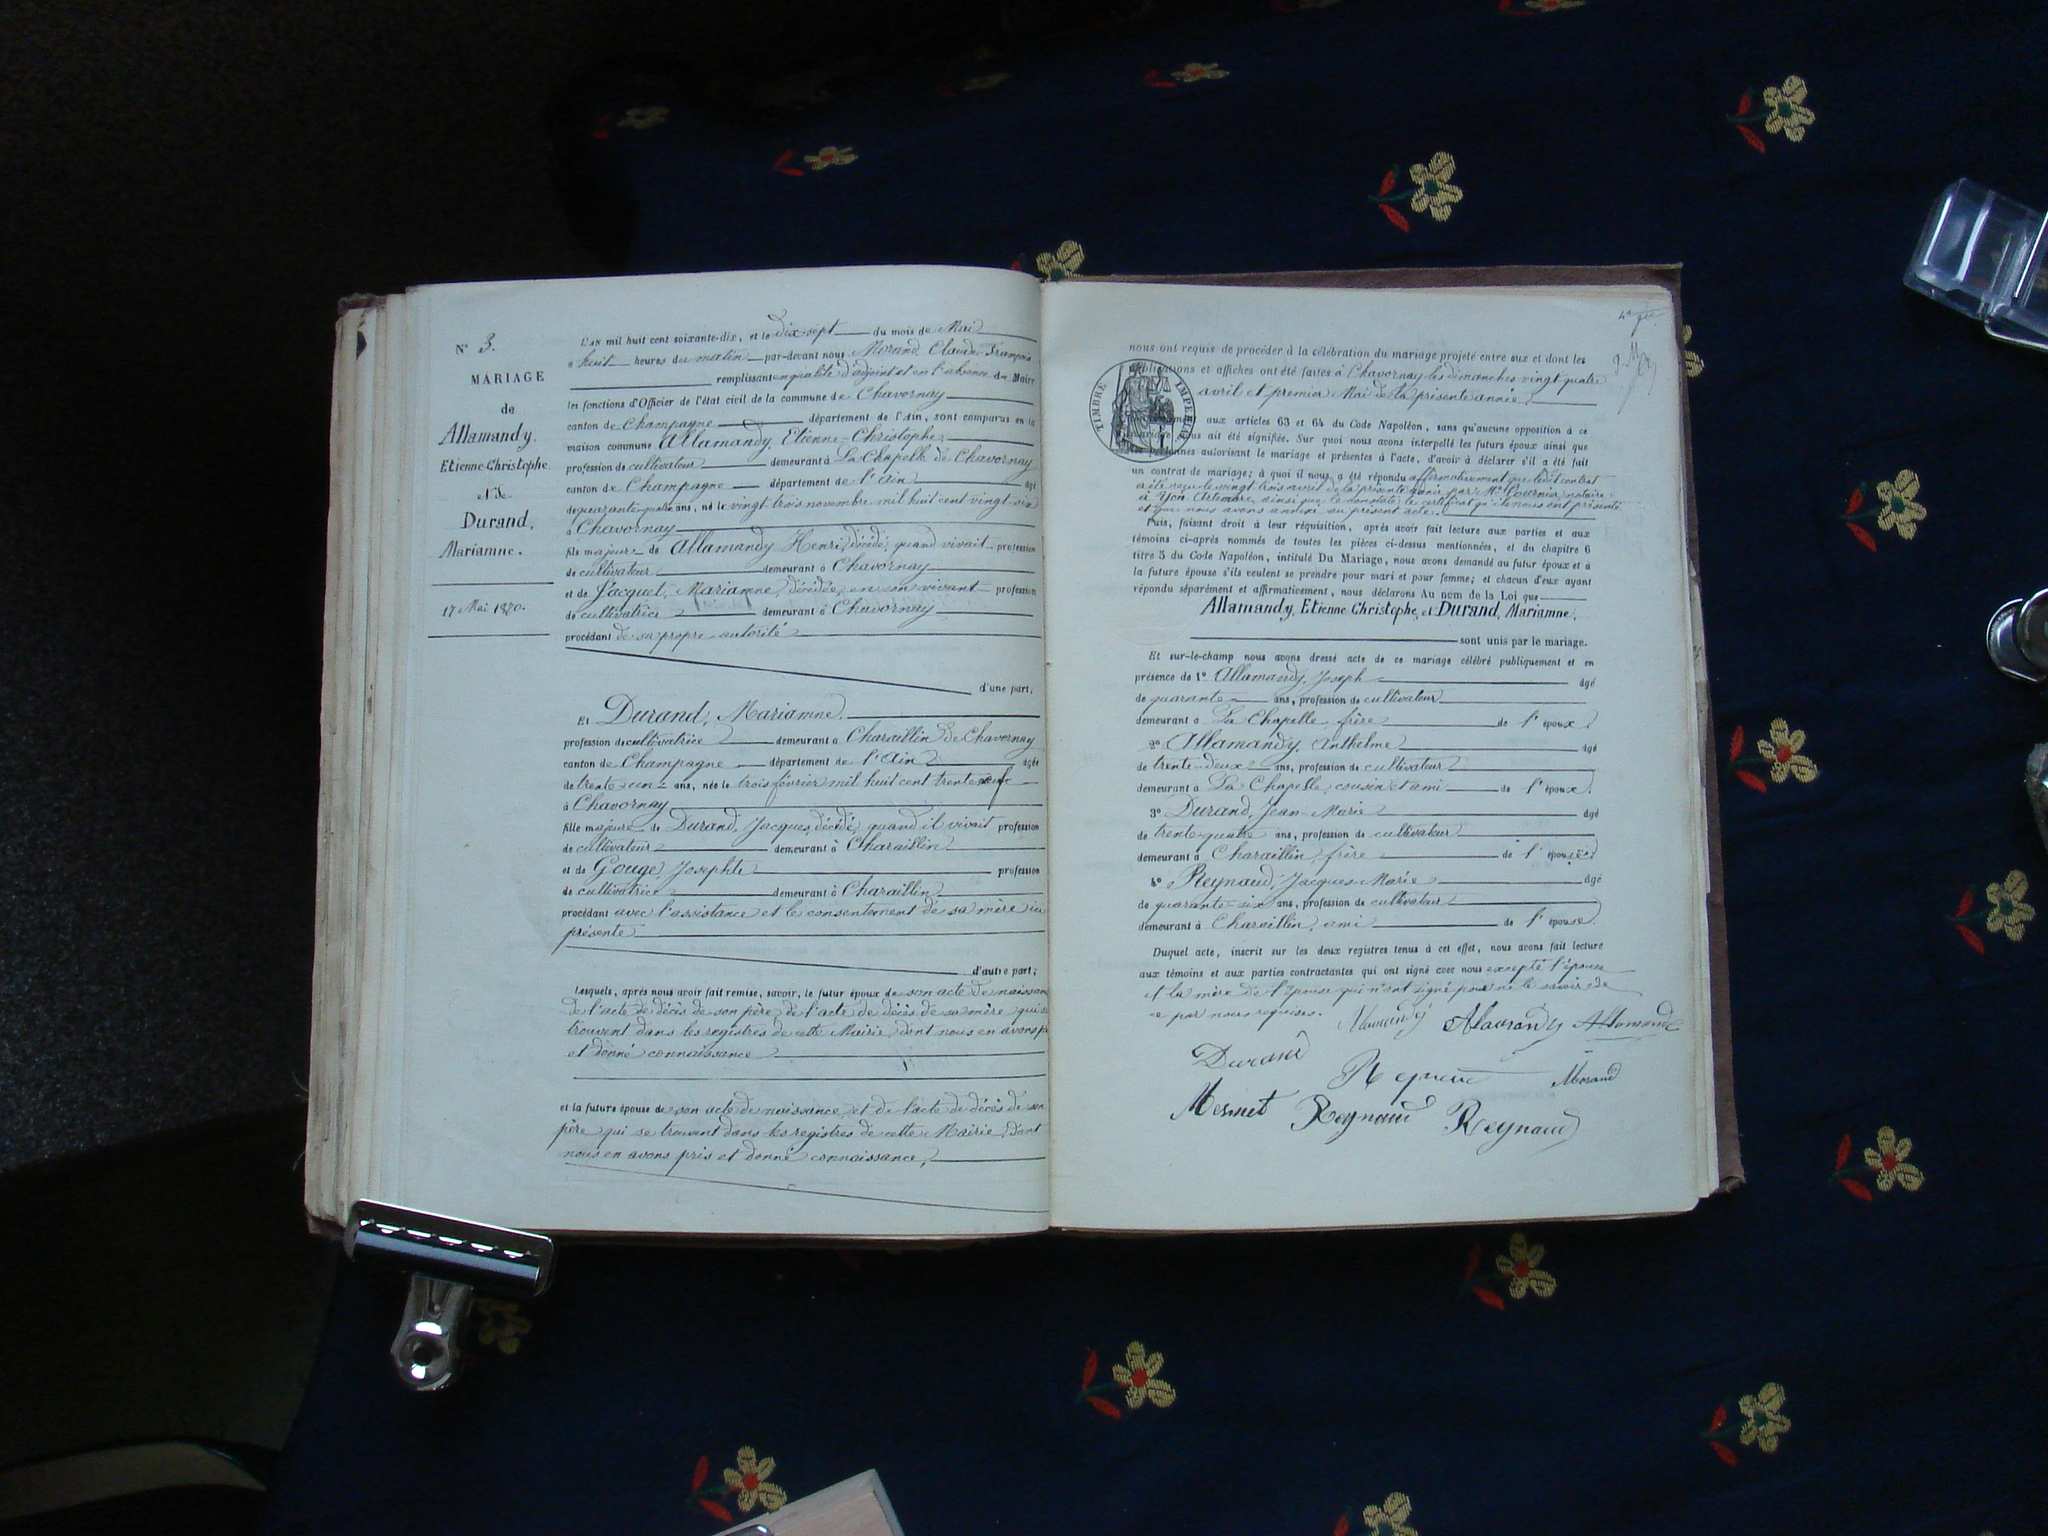 N° 3.
MARIAGE
de
Allamandy,
Etienne-Christophe
et de
Durand,
Mariamne.
17 Mai 1870.
L'an mil huit cent soixante-dix, et le dix-sept du mois de Mai
à huit heures du matin par-devant nous Morand Claude-François
remplissant en qualité d'adjoint et en l'absence du Maire
les fonctions d'Officier de l'état civil de la commune de Chavornay
canton de Champagne département de l'Ain, sont comparus en la
maison commune Allamandy, Etienne-Christophe,
profession de cultivateur demeurant à La Chapelle de Chavornay
canton de Champagne département de l'Ain âgé
de quarante-quatre ans, né le vingt trois novembre mil huit cent vingt-six
à Chavornay
fils majeur de Allamandy Henri, décédé, quand vivait profession
de cultivateur demeurant à Chavornay
et de Jacquet, Mariamne, décédée, en son vivant profession
de cultivatrice demeurant à Chavornay
procédant de sa propre autorité
d'une part;
Et Durand, Mariamne.
profession de cultivatrice demeurant à Charaillin de Chavornay
canton de Champagne département de l'Ain âgée
de trente-un ans, née le trois février mil huit cent trente neuf
à Chavornay
fille majeure de Durand, Jacques, décédé, quand il vivait profession
de cultivateur demeurant à Charaillin
et de Gouge, Josephte profession
de cultivatrice demeurant à Charaillin
procédant avec l'assistance et le consentement de sa mère ici
présente
d'autre part;
Lesquels, après nous avoir fait remise, savoir, le futur époux de son acte de naissan
de l'acte de décès de son père, de l'acte de décès de sa mère, qui se
trouvent dans les registres de cette Mairie, dont nous en avons p
et donné connaissance
et la future épouse de son acte de naissance, et de l'acte de décès de son
père qui se trouvent dans les registres de cette Mairie, dont
nous en avons pris et donné connaissance,
nous ont requis de procéder à la célébration du mariage projeté entre eux et dont les
publications et affiches ont été faites à Chavornay les dimanches vingt-quatre
avril et premier Mai de la présente année,
TIMBRE IMPÉRIAL
aux articles 63 et 64 du Code Napoléon, sans qu'aucune opposition à ce
mariage nous ait été signifiée. Sur quoi nous avons interpellé les futurs époux ainsi que
les personnes autorisant le mariage et présentes à l'acte, d'avoir à déclarer s'il a été fait
un contrat de mariage; à quoi il nous a été répondu affirmativement que ledit contrat
a été reçu le vingt trois avril de la présente année par Me Fournier, notaire
à Yon Artemare, ainsi que le constate le certificat qu'ils nous ont présenté
et que nous avons annexé au présent acte.
Puis, faisant droit à leur réquisition, après avoir fait lecture aux parties et aux
témoins ci-après nommés de toutes les pièces ci-dessus mentionnées, et du chapitre 6
titre 5 du Code Napoléon, intitulé Du Mariage, nous avons demandé au futur époux et à
la future épouse s'ils veulent se prendre pour mari et pour femme; et chacun d'eux ayant
répondu séparément et affirmativement, nous déclarons Au nom de la Loi que
Allamandy, Etienne-Christophe, et Durand, Mariamne.
sont unis par le mariage.
Et sur-le-champ nous avons dressé acte de ce mariage célébré publiquement et en
présence de 1° Allamandy, Joseph âgé
de quarante ans, profession de cultivateur
demeurant à La Chapelle, frère de l'époux
2° Allamandy, Anthelme âgé
de trente-deux ans, profession de cultivateur
demeurant à La Chapelle, cousin et ami de l'époux.
3° Durand, Jean-Marie âgé
de trente-quatre ans, profession de cultivateur
demeurant à Charaillin, frère de l'épouse
4° Reynaud, Jacques-Marie âgé
de quarante-six ans, profession de cultivateur
demeurant à Charaillin, ami de l'épouse.
Duquel acte, inscrit sur les deux registres tenus à cet effet, nous avons fait lecture
aux témoins et aux parties contractantes qui ont signé avec nous excepté l'épouse
et la mère de l'épouse qui n'ont signé pour ne le savoir de
ce par nous requises.
Allamandy
Durand
Morand
Mermet Reynaud Reynaud